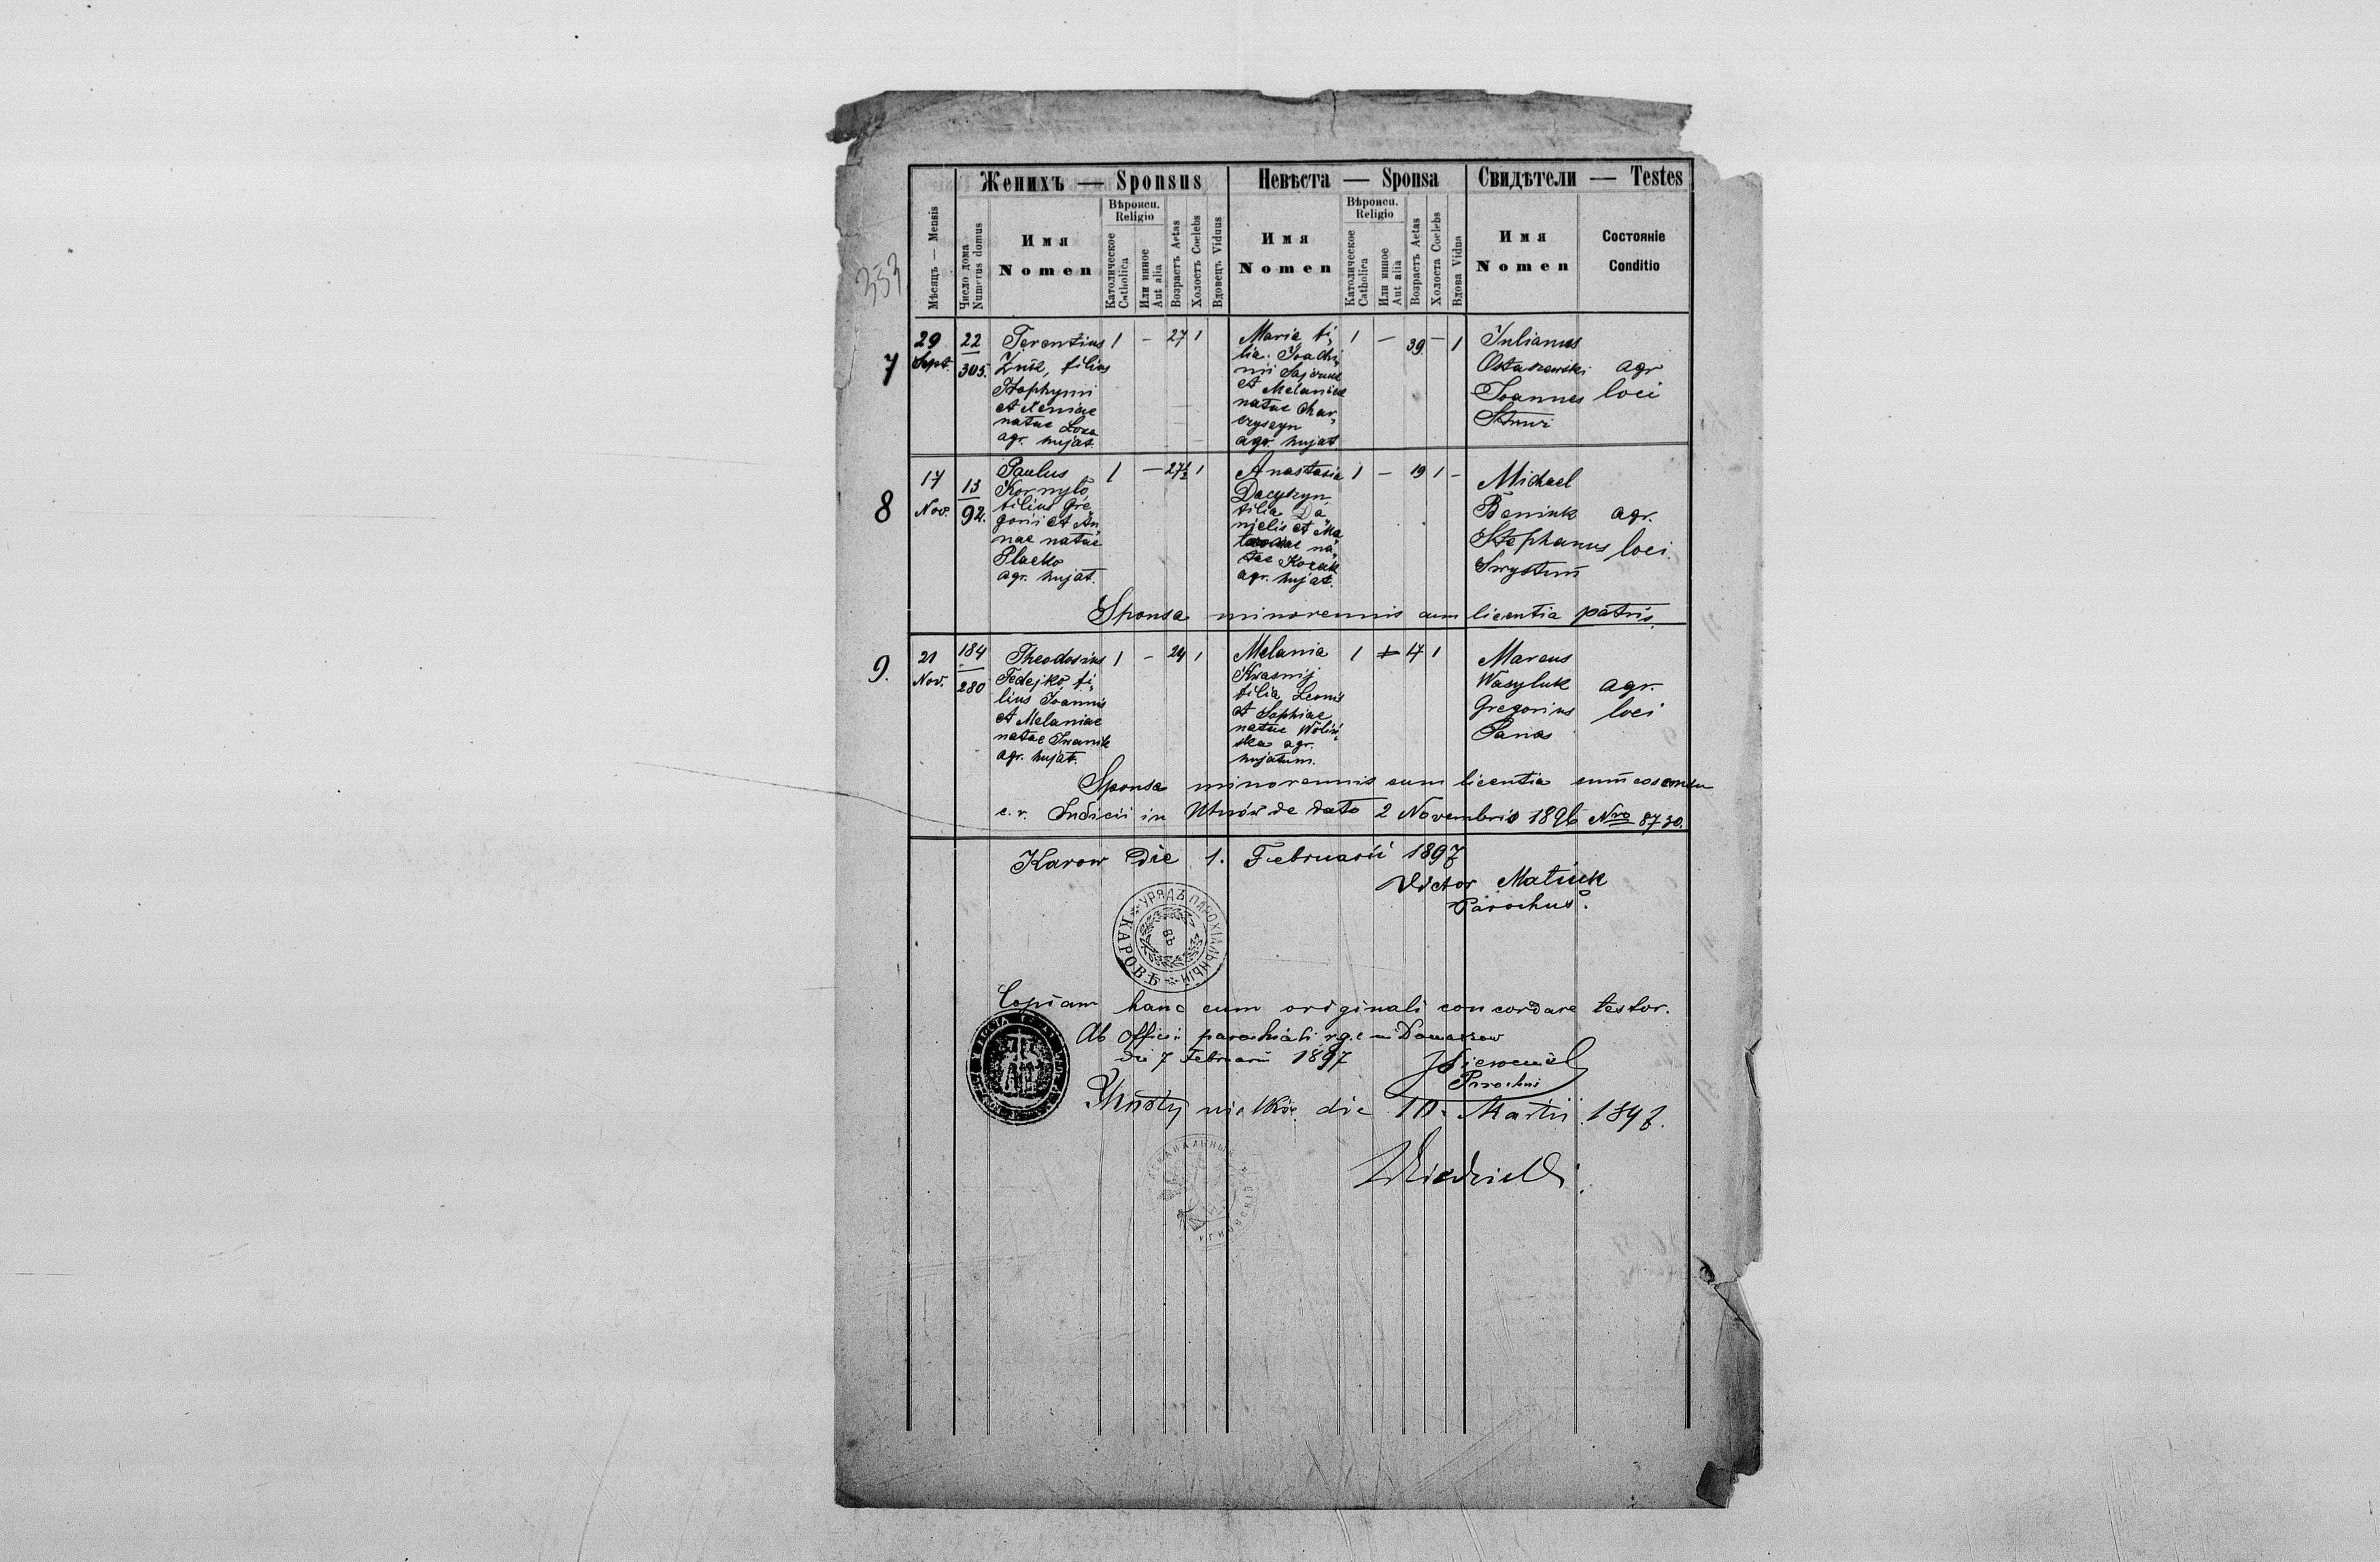 Женихъ — Sponsus
Невѣста — Sponsa
Свидѣтели — Testes
Мѣсяцъ — Mensis
Число дома
Numerus domus
Имя
Nomen
Вѣроисп.
Religio
Католическое
Catholica
Или инное
Aut alia
Возрастъ Aetas
Холостъ Coelebs
Вдовецъ Viduus
Имя
Nomen
Вѣроисп.
Religio
Католическое
Catholica
Или инное
Aut alia
Возрастъ Aetas
Холоста Coelebs
Вдова Vidua
Имя
Nomen
Состояніе
Conditio
353
7
29
Sept.
22
305.
Terentius
filius
et
natae Loza
agr. hujat.
1 — 27 1
Maria fi-
lia Joachi-
mii
et Melaniae
natae Char-
czyszyn
agr. hujat.
1 — 39 — 1
Julianus
Ostaszewski
Joannes
agr
loci
8
17
Nov.
13
92.
Paulus
Kornyło
filius Gre-
gorii et An-
nae natae
Placko
agr. hujat.
1 — 27½ 1
Anastasia
Dacyszyn
filia Da-
nielis et Ma-
na-
tae Kozak
agr. hujat.
1 — 19 1 —
Michael
Beniuk
Stephanus
agr.
loci.
Sponsa minorennis cum licentia patris.
9.
21
Nov.
184
280
Theodosius
Fedejko fi-
lius Joannis
et Melaniae
natae Iwanik
agr. hujat.
1 — 24 1
Melania
Kwasnij
filia Leonis
et Sophiae
natae Woliń-
ska agr.
hujatum.
1 17 1
Marcus
Wasyluk
Gregorius
Panas
agr.
loci
Sponsa minorennis cum licentia
c. r. Judicii in Uhnów de dato 2 Novembris 1896 Nro 8730.
Karow die 1. Februarii 1897
Victor Matiuk
Parochus.
УРЯДЪ ПАРОХІАЛЬНЫЙ
ВЪ
КАРОВѢ
Copiam hanc cum originali concordare testor.
Ab officii parochiali r.g.c in Domaszow
die 7 Februarii 1897
Parochus
die 10. Martii 1897.